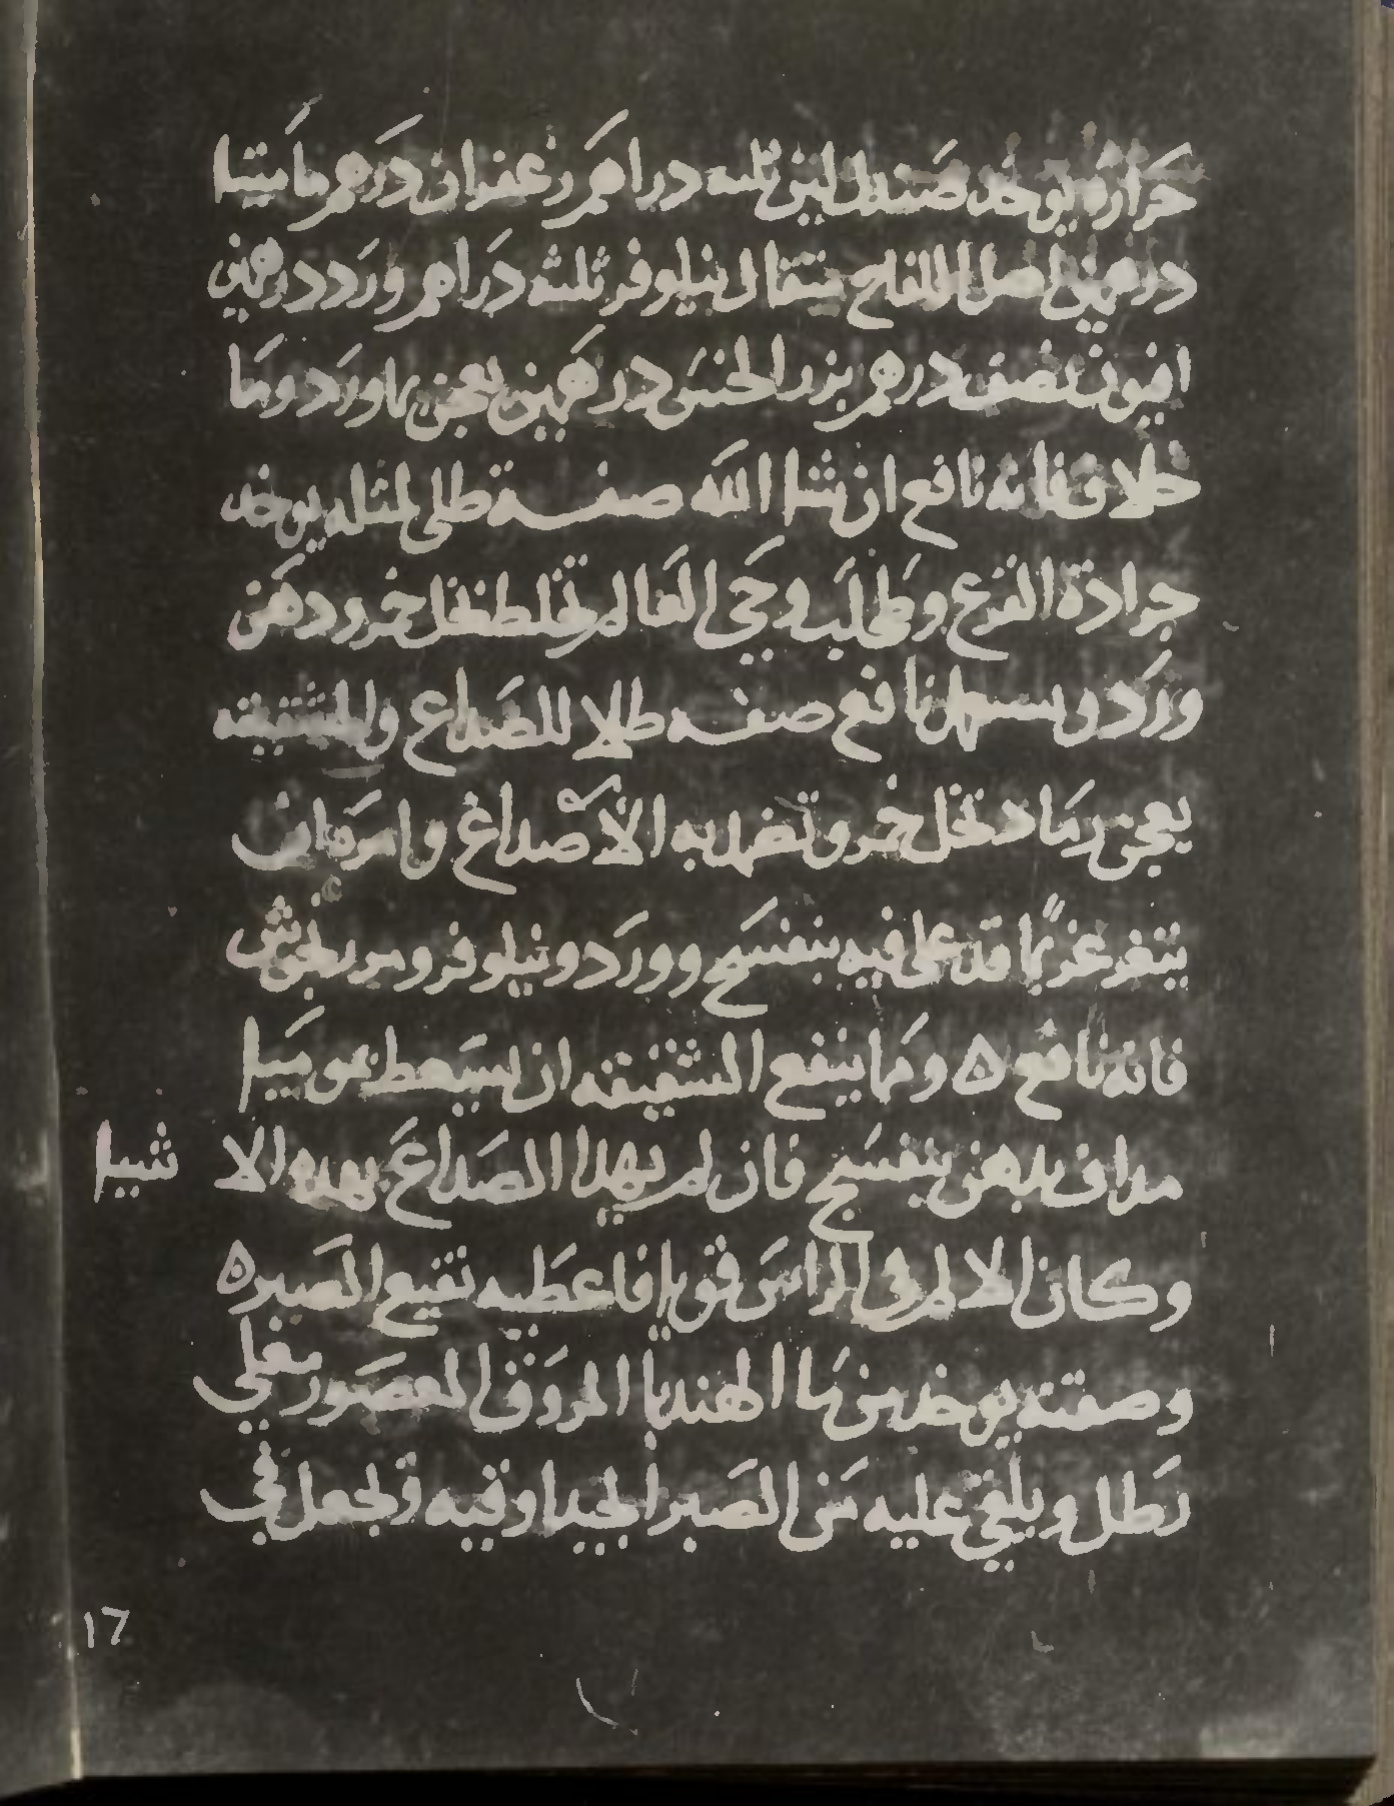 حرارة يوخد صندل ابيض ثلثه دراهم زعفران درهم ماميثا
درهمين اصل اللفاح مثقال نيلوفر ثلثه دراهم وورد درهمين
افيون نصف درهم بزر الخس درهمين يعجن بماورد وما
خلاف فانه نافع ان شا الله صفة طلى لمثله يوخد
جرادة القرع وطحلب وحي العالم تخلط بخل خمر ودهن
ورد نافع صفه طلا للصداع والشقيقه
يعجن رماد بخل خمر وتضمد به الاصداغ وامره ان
يتغرغر بما قد غلي فيه بنفسج وورد ونيلوفر ومرزنجوش
فانه نافع ه ومما ينفع الشقيقه ان يسعط بموميا
مداف بدهن بنفسج فان لم يهدا الصداع بهده الا شيا
وكان الالم في الراس قويا فاعطيه نقيع الصبر ه
وصفته يوخد من ما الهندبا المروق المعصور مغلي
رطل ويلقي عليه من الصبر الجيد اوقيه وتجعل في
١٦